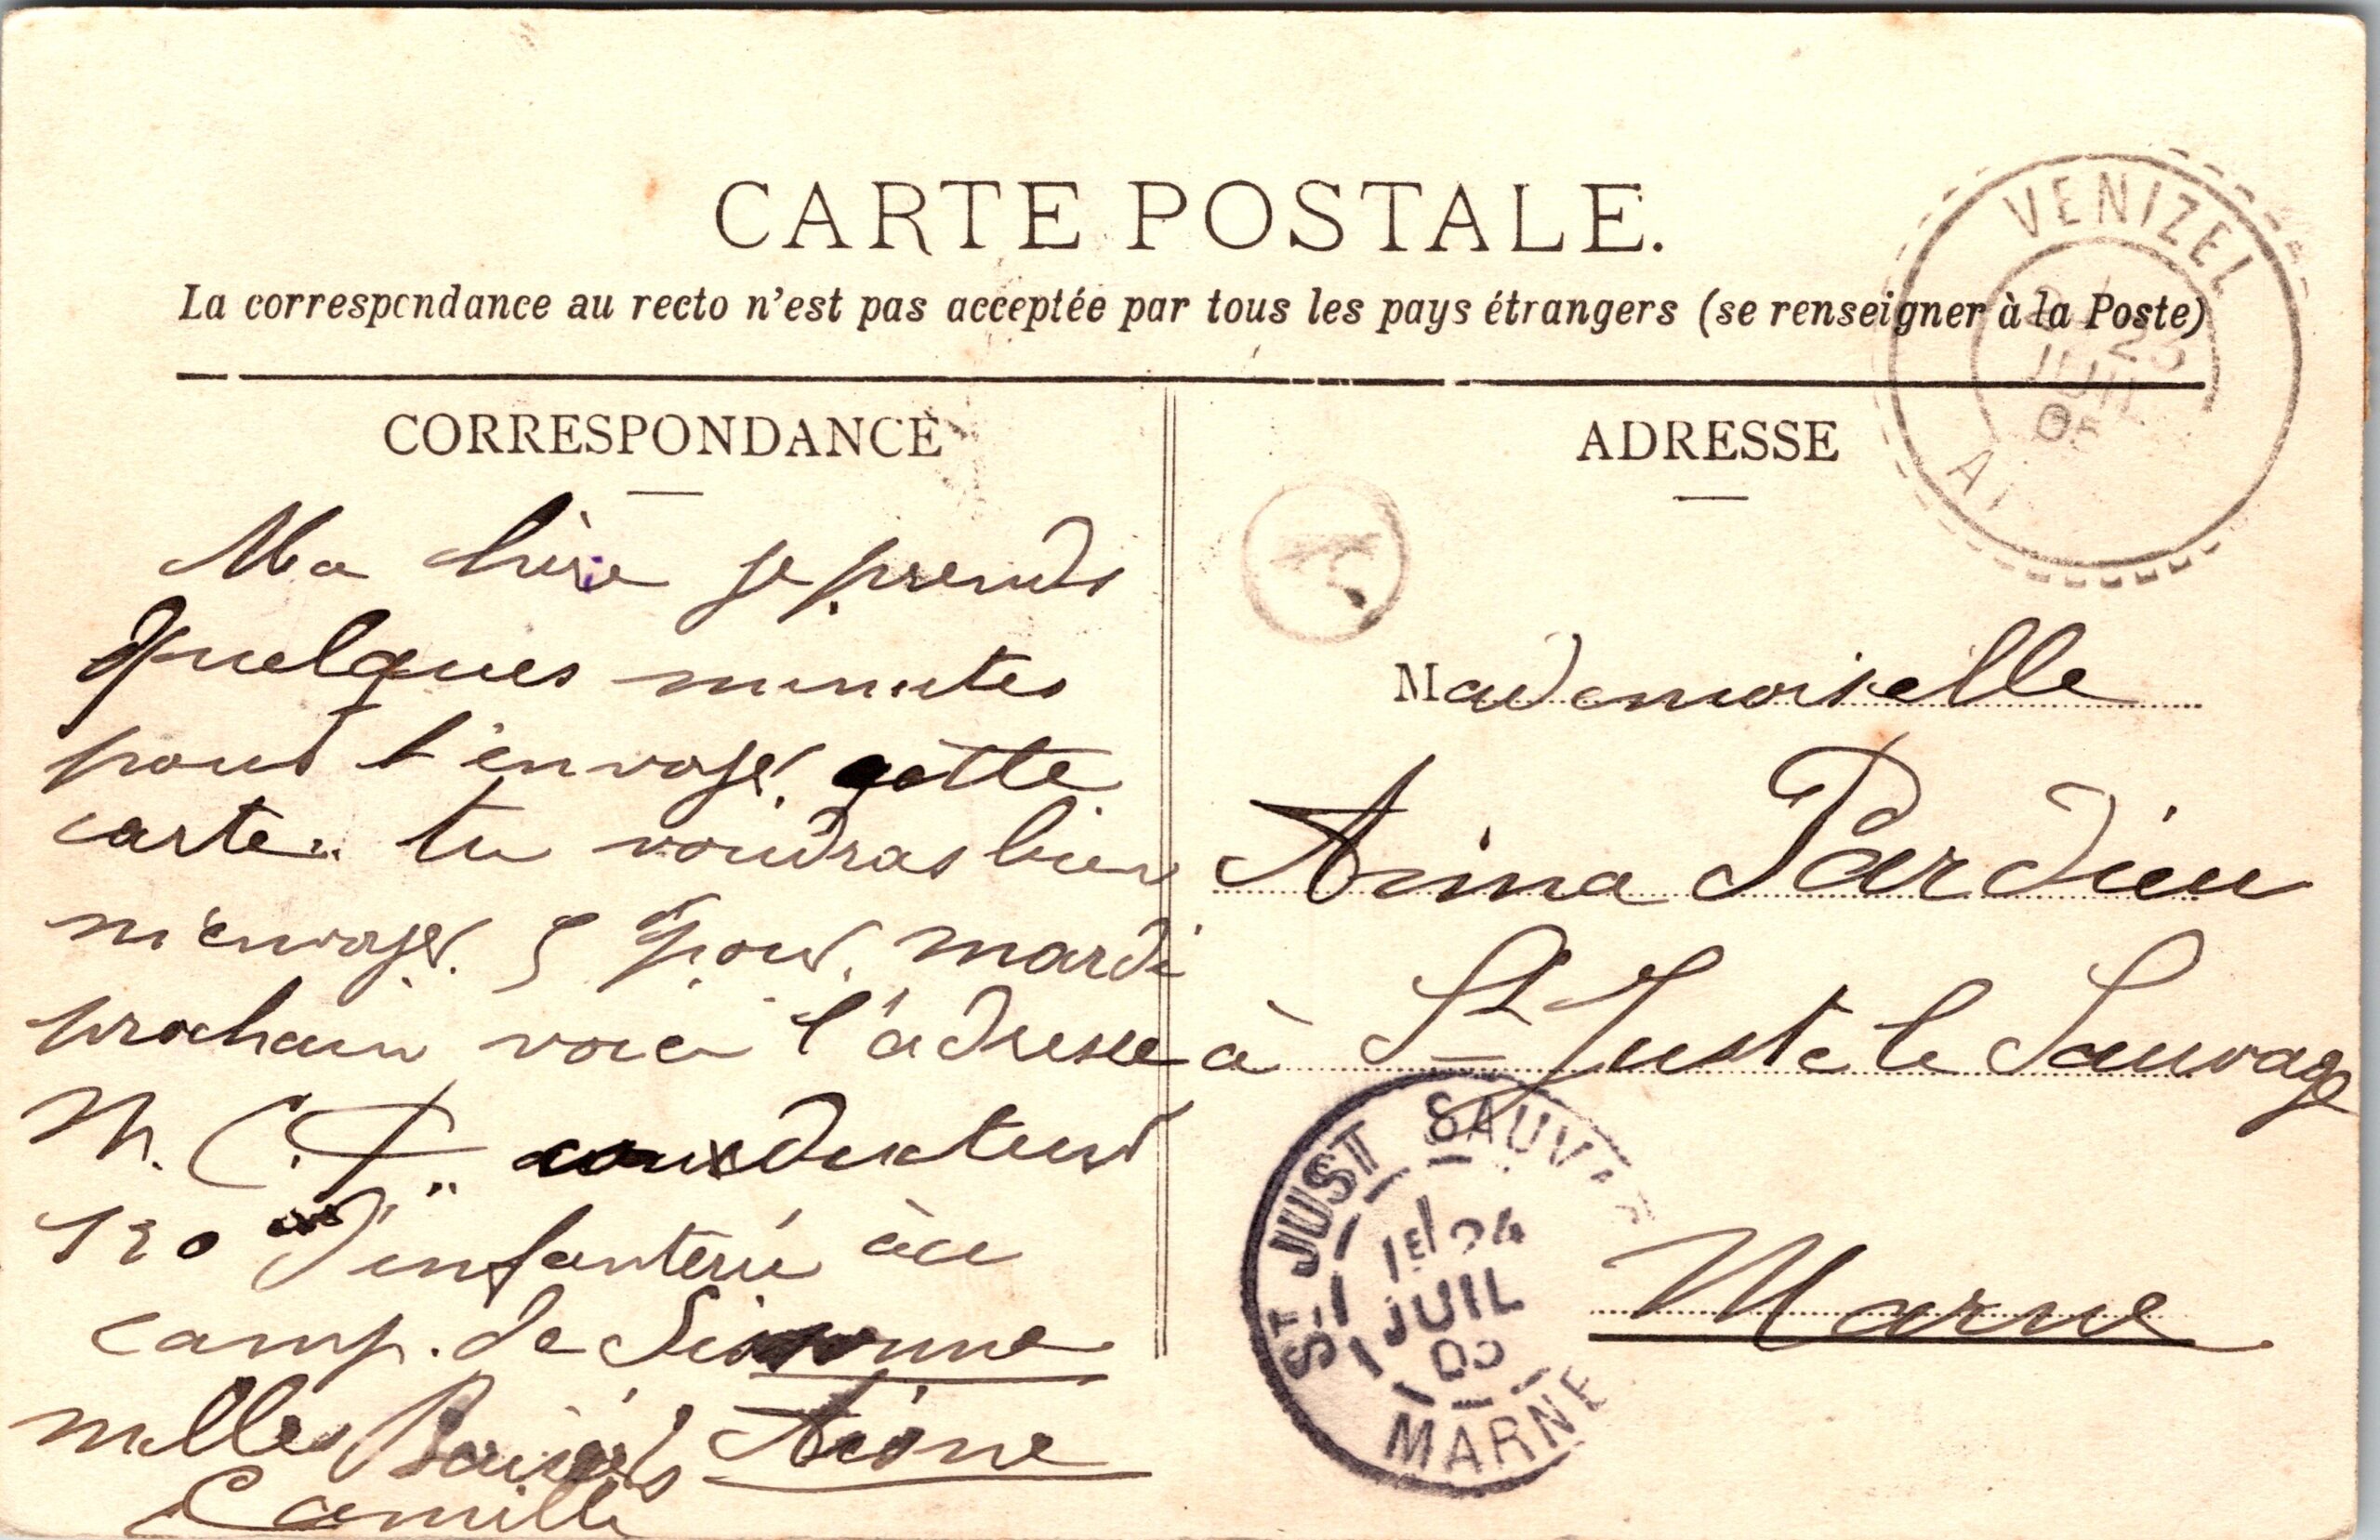 CARTE POSTALE.
La correspondance au recto n'est pas acceptée par tous les pays étrangers (se renseigner à la Poste)
CORRESPONDANCE
Ma chère je prends
quelques minutes
pour t'envoyer cette
carte. tu voudras bien
m'envoyer 5 f pour mardi
prochain voici l'adresse
M. C. P. conducteur
120 d'infanterie au
camp de Sissonne
Aisne
mille Baisers
Camille
ADRESSE
Mademoiselle
Anna Pardieu
à St Juste le Sauvage
Marne
VENIZEL
23
JUIL
05
ST JUST SAUV
1E 24
JUIL
05
MARNE